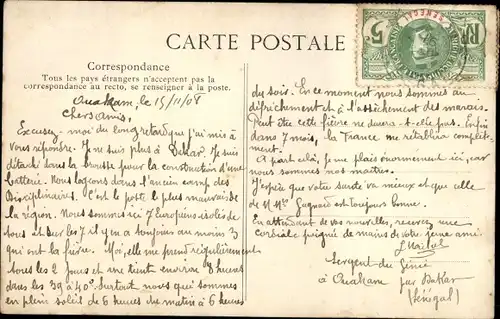 CARTE POSTALE
Correspondance
Tous les pays étrangers n'acceptent pas la
correspondance au recto, se renseigner à la poste.
Ouakam, le 15/11/08
Chers amis,
Excusez-moi du long retard que j'ai mis à
vous répondre. Je ne suis plus à Dakar. Je suis
détaché dans la brousse pour la construction d'une
batterie. Nous logeons dans l'ancien camp des
Disciplinaires. C'est le poste le plus mauvais de
la région. Nous sommes ici 7 Européens isolés de
tous et sur les 7 il y en a toujours au moins 3
qui ont la fièvre. Moi, elle me prend régulièrement
tous les 2 jours et me tient environ 8 heures
dans les 39 à 40° surtout nous qui sommes
en plein soleil de 6 heures du matin à 6 heures
du soir. En ce moment nous sommes au
défrichement et à l'assèchement des marais.
Peut être cette fièvre ne durera-t-elle pas. Enfin
dans 7 mois, la France me rétablira complèt-
ement.
A part cela, je me plais énormément ici, car
nous sommes nos maîtres.
J'espère que votre santé va mieux et que celle
de Mme Gagnaid est toujours bonne.
En attendant de vos nouvelles, recevez une
cordiale poignée de mains de votre jeune ami
Sergent du Génie
à Ouakam par Dakar
(Sénégal)
SÉNÉGAL
5